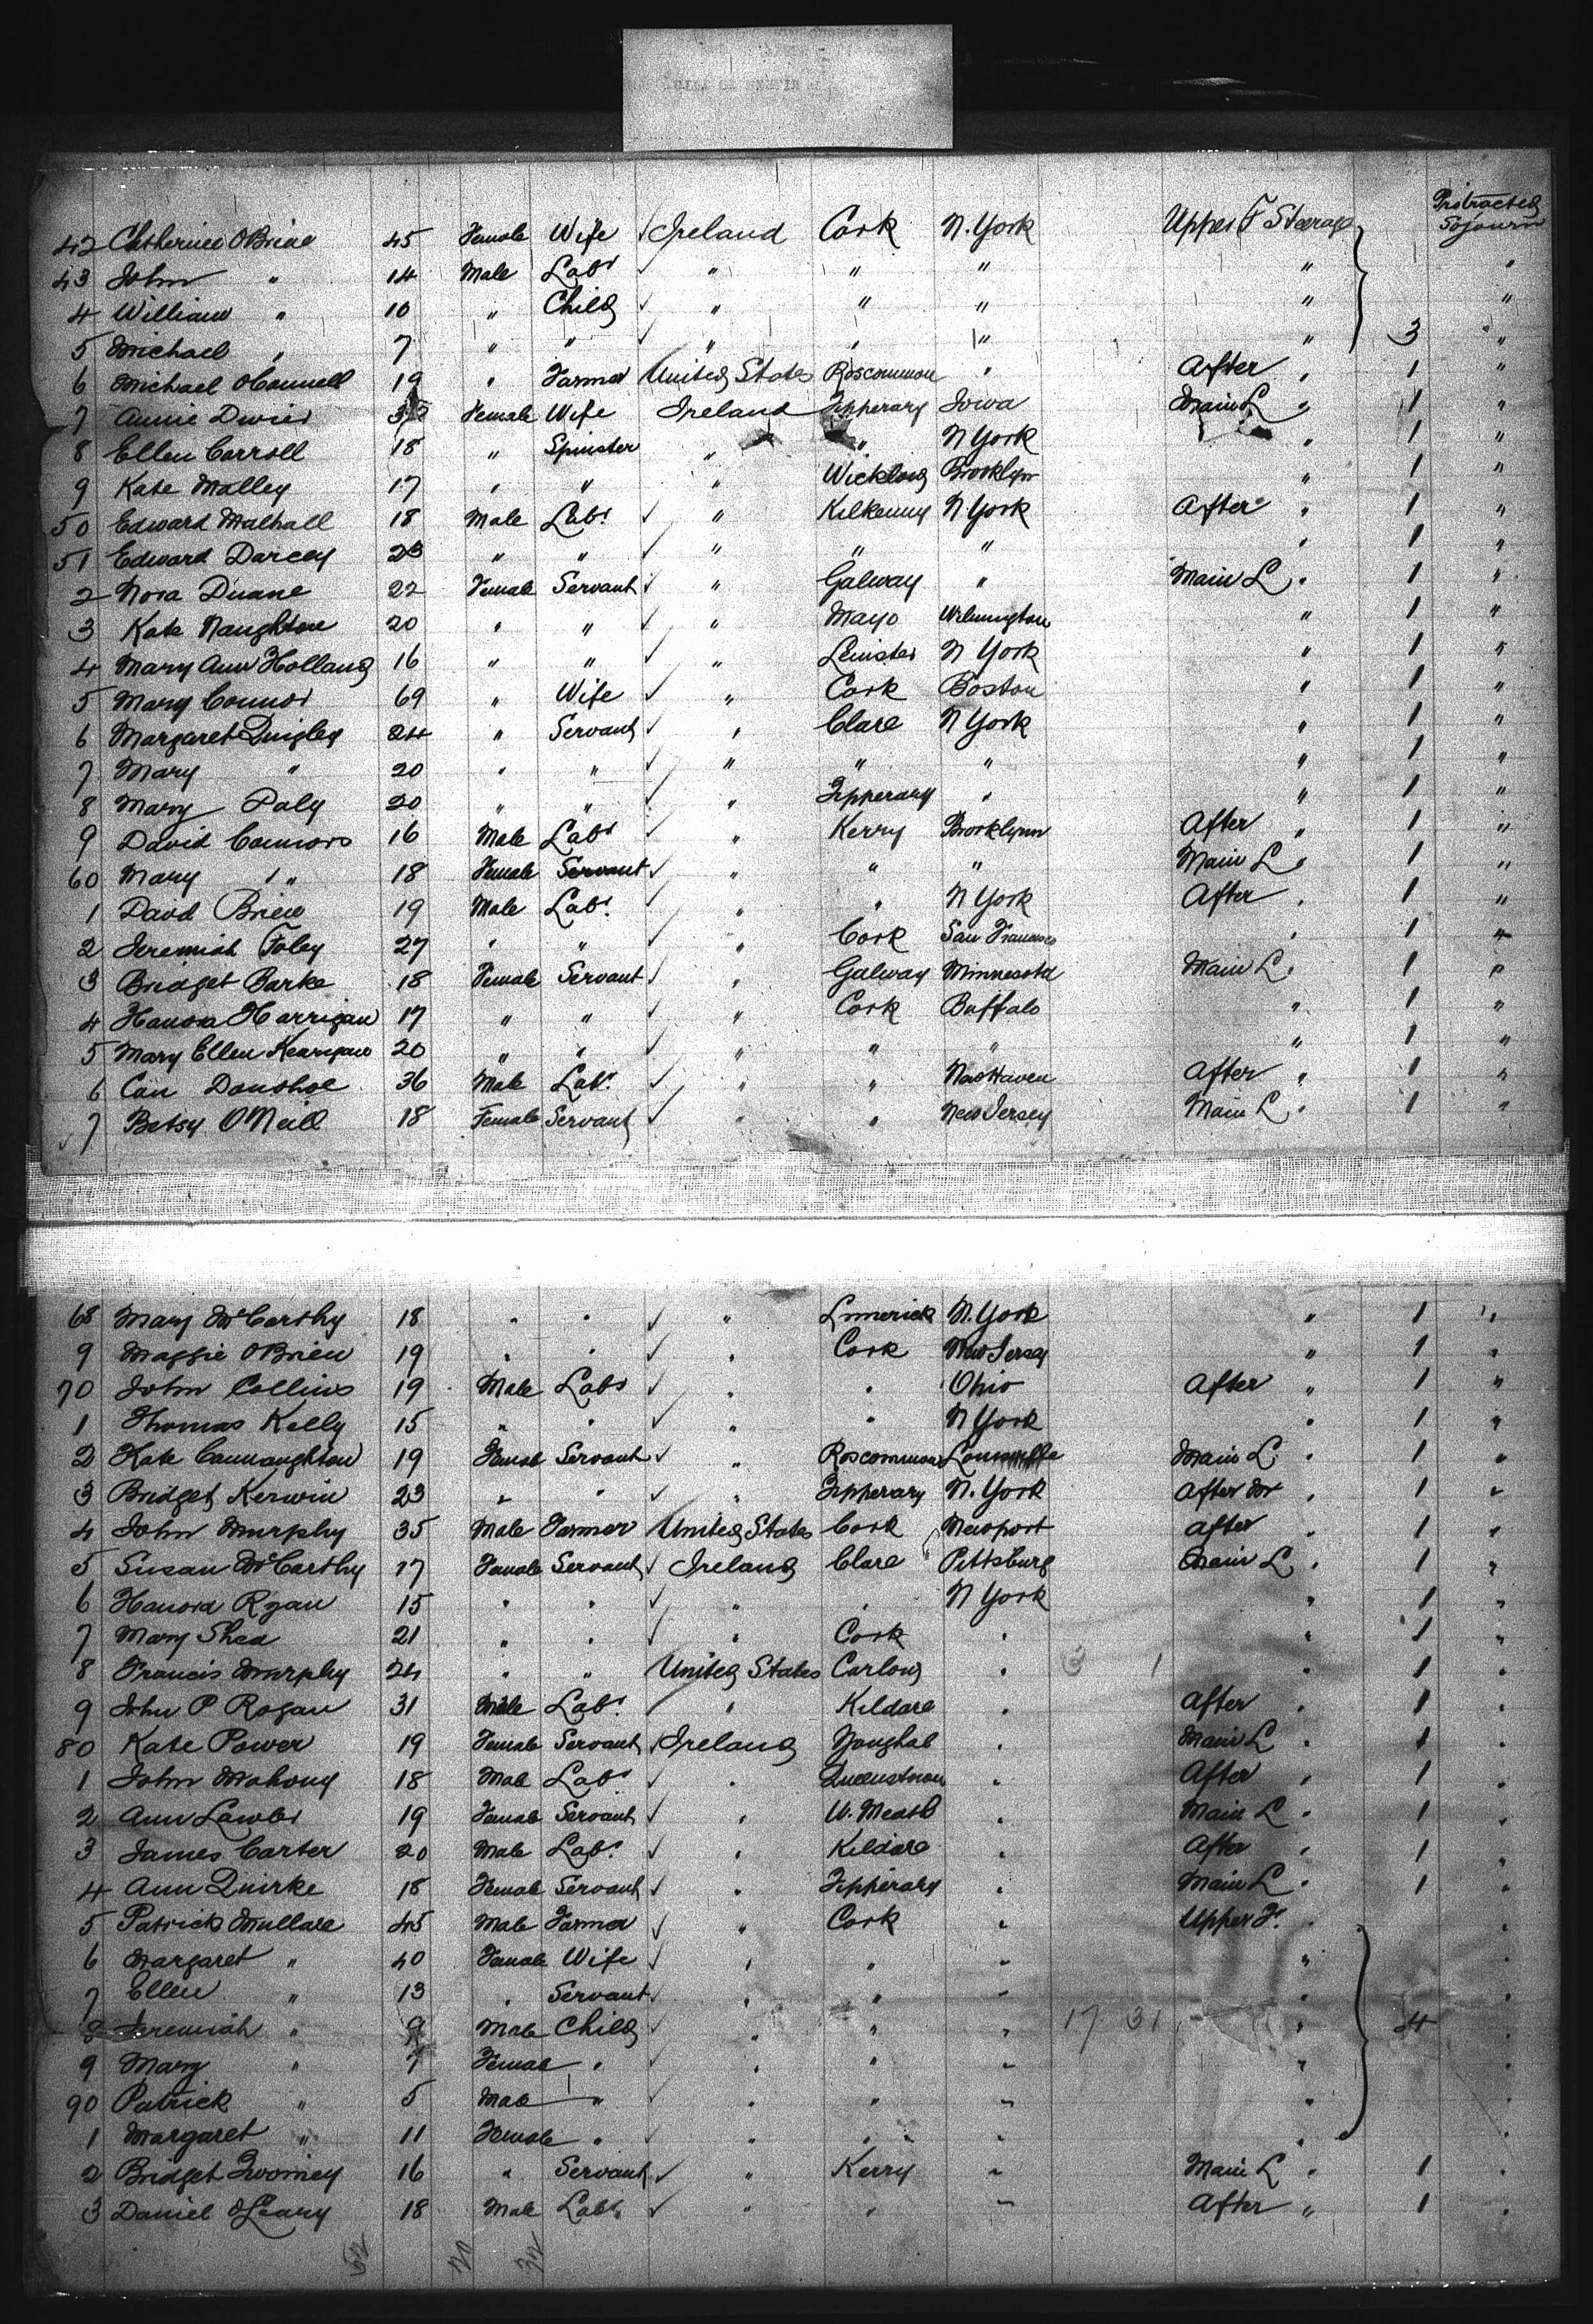 Protracted
42 Catherine OBrine 45 Female Wife ✓ Ireland Cork N. York Upper F Steerage Sojourn
43 John " 14 Male Labr ✓ " " " " "
4 William " 10 " Child ✓ " " " " "
5 Michael " 7 " " ✓ " " " " 3 "
6 Michael OConnell 19 " Farmer United States Roscommon " After " 1 "
7 Annie Female Wife Ireland Tipperary Iowa Main L " 1 "
8 Ellen Carroll 18 " Spinster " " N York " 1 "
9 Kate Malley 17 " " " Wicklow Brooklyn " 1 "
50 Edward Malhall 18 Male Labr ✓ " Kilkenny N York After " 1 "
51 Edward Darcey 23 " " ✓ " " " " 1 "
2 Nora Duane 22 Female Servant ✓ " Galway " Main L " 1 "
3 Kate Naughton 20 " " ✓ " Mayo Wilmington " 1 "
4 Mary Ann Holland 16 " " ✓ " Leinster N York " 1 "
5 Mary Connor 69 " Wife ✓ " Cork Boston " 1 "
6 Margaret Quigley 24 " Servant ✓ " Clare N York " 1 "
7 Mary " 20 " " ✓ " " " " 1 "
8 Mary Daly 20 " " ✓ " Tipperary " " 1 "
9 David Connors 16 Male Labr ✓ " Kerry Brooklynn After " 1 "
60 Mary " 18 Female Servant ✓ " " " Main L " 1 "
1 David Brien 19 Male Labr ✓ " " N York After " 1 "
2 Jeremiah Foley 27 " " ✓ " Cork San Francisco " 1 "
3 Bridget Burke 18 Female Servant ✓ " Galway Minnesota Main L " 1 "
4 Hanora Harrigan 17 " " ✓ " Cork Buffalo " 1 "
5 Mary Ellen Kearigan 20 " " ✓ " " " " 1 "
6 Con Donohoe 36 Male Labr ✓ " " New Haven After " 1 "
7 Betsy ONeill 18 Female Servant ✓ " " New Jersey Main L " 1 "
68 Mary McCarthy 18 " " ✓ " Limerick N. York " 1 "
9 Maggie OBrien 19 " " ✓ " Cork New Jersey " 1 "
70 John Collins 19 Male Labr ✓ " " Ohio After " 1 "
1 Thomas Kelly 15 " " ✓ " " N York " 1 "
2 Kate Connaughton 19 Female Servant ✓ " Roscommon Louisville Main L " 1 "
3 Bridget Kerwin 23 " " ✓ " Tipperary N. York After " 1 "
4 John Murphy 35 Male Farmer United States Cork Newport After " 1 "
5 Susan McCarthy 17 Female Servant ✓ Ireland Clare Pittsburg Main L " 1 "
6 Hanora Ryan 15 " " ✓ " " N York " 1 "
7 Mary Shea 21 " " ✓ " Cork " " 1 "
8 Francis Murphy 24 " " United States Carlow " 3 1 " 1 "
9 John P Rogan 31 Male Labr " Kildare " After " 1 "
80 Kate Power 19 Female Servant Ireland Youghal " Main L " 1 "
1 John Mahony 18 Male Labr ✓ " Queenstown " After " 1 "
2 Ann Lawler 19 Female Servant ✓ " W. Meath " Main L " 1 "
3 James Carter 20 Male Labr ✓ " Kildare " After " 1 "
4 Ann Quirke 18 Female Servant ✓ " Tipperary " Main L " 1 "
5 Patrick Mullare 45 Male Farmer ✓ " Cork " Upper F. "
6 Margaret " 40 Female Wife ✓ " " " " "
7 Ellen " 13 " Servant ✓ " " " " "
8 Jeremiah " 9 Male Child ✓ " " " 17 31 " 4 "
9 Mary " 7 Female " ✓ " " " " "
90 Patrick " 5 Male " ✓ " " " " "
1 Margaret " 11 Female " ✓ " " " " "
2 Bridget Twomey 16 " Servant ✓ " Kerry " Main L " 1 "
3 Daniel OLeary 18 Male Labr ✓ " " " After " 1 "